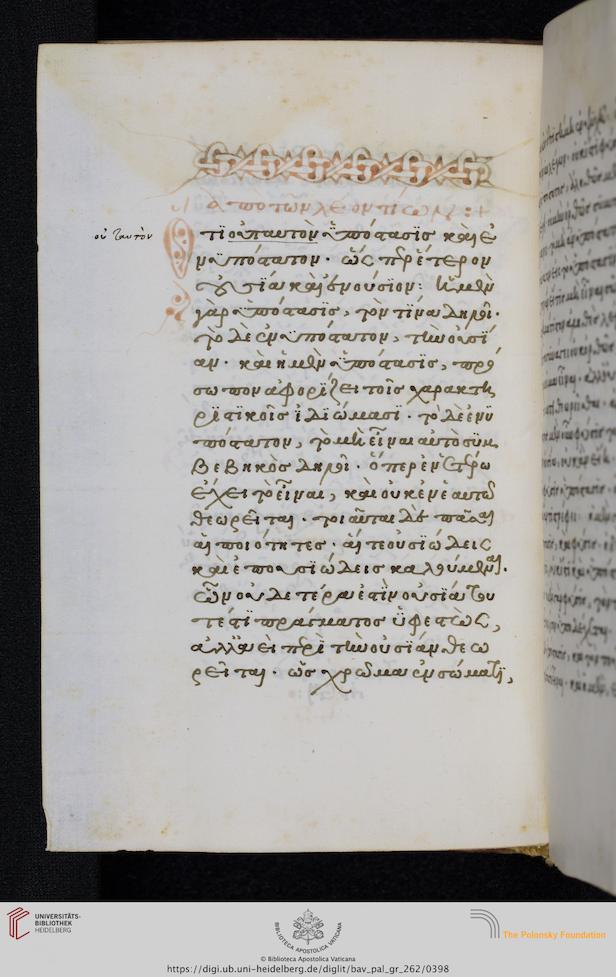 Ἀπὸ τῶν λεοντίου :+
οὐ ταυτὸν
Ὅτι οὐ ταυτον ὑπόστασϊς καὶ ἐ
νυπόστατον· ὥσπερ ἕτερον
οὐσία καὶ ἐνούσιον: ἡ μὲν
γὰρ ὑπόστασϊς, τὸν τϊνα δηλοῖ·
τὸ δὲ ἐνυπόστατον, τὴν οὐσί
αν· καὶ ἡ μὲν ὑπόστασϊς, πρό
σωπον ἀφορίζει τοῖς χαρακτη
ρϊστϊκοῖς ἰδϊώμασϊ· τὸ δὲ ἐνυ
πόστατον, τὸ μὴ εἶναι αὐτὸ συμ
βεβηκὸς δηλοῖ· ὅπερ ἐν ἑτέρω
ἔχει τὸ εἶναι, καὶ οὐκ ἐν ἑαυτῶ
θεωρεῖται· τοιαῦται δὲ πᾶσαι
αἱ ποιότητες· αἵ τε οὐσϊώδεις
καὶ ἐπουσϊώδεις καλούμεναι·
ὧν οὐδετέρα ἐστὶν οὐσία του
τέστϊ πρᾶγμα ὑφεστὼς,
ἀλλ' ἀεὶ περὶ τὴν οὐσίαν θεω
ρεῖται· ὡς χρῶμα ἐν σώματϊ,
UNIVERSITÄTS-
BIBLIOTHEK
HEIDELBERG
BIBLIOTECA APOSTOLICA VATICANA
The Polonsky Foundation
© Biblioteca Apostolica Vaticana
https://digi.ub.uni-heidelberg.de/diglit/bav_pal_gr_262/0398